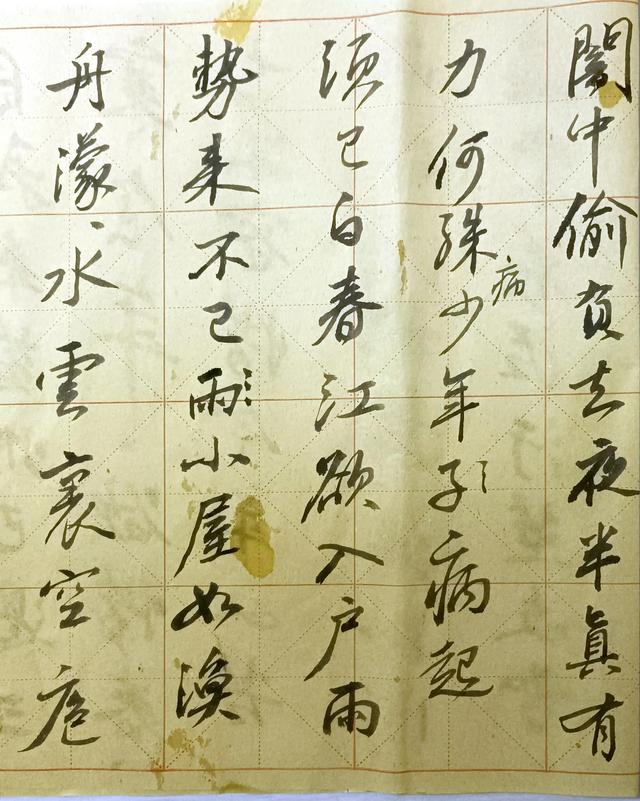 闇中偷負去夜半眞有
力何殊病少年子病起
須已白春江欲入戶雨
勢来不已雨小屋如漁
舟濛〻水雲裏空庖